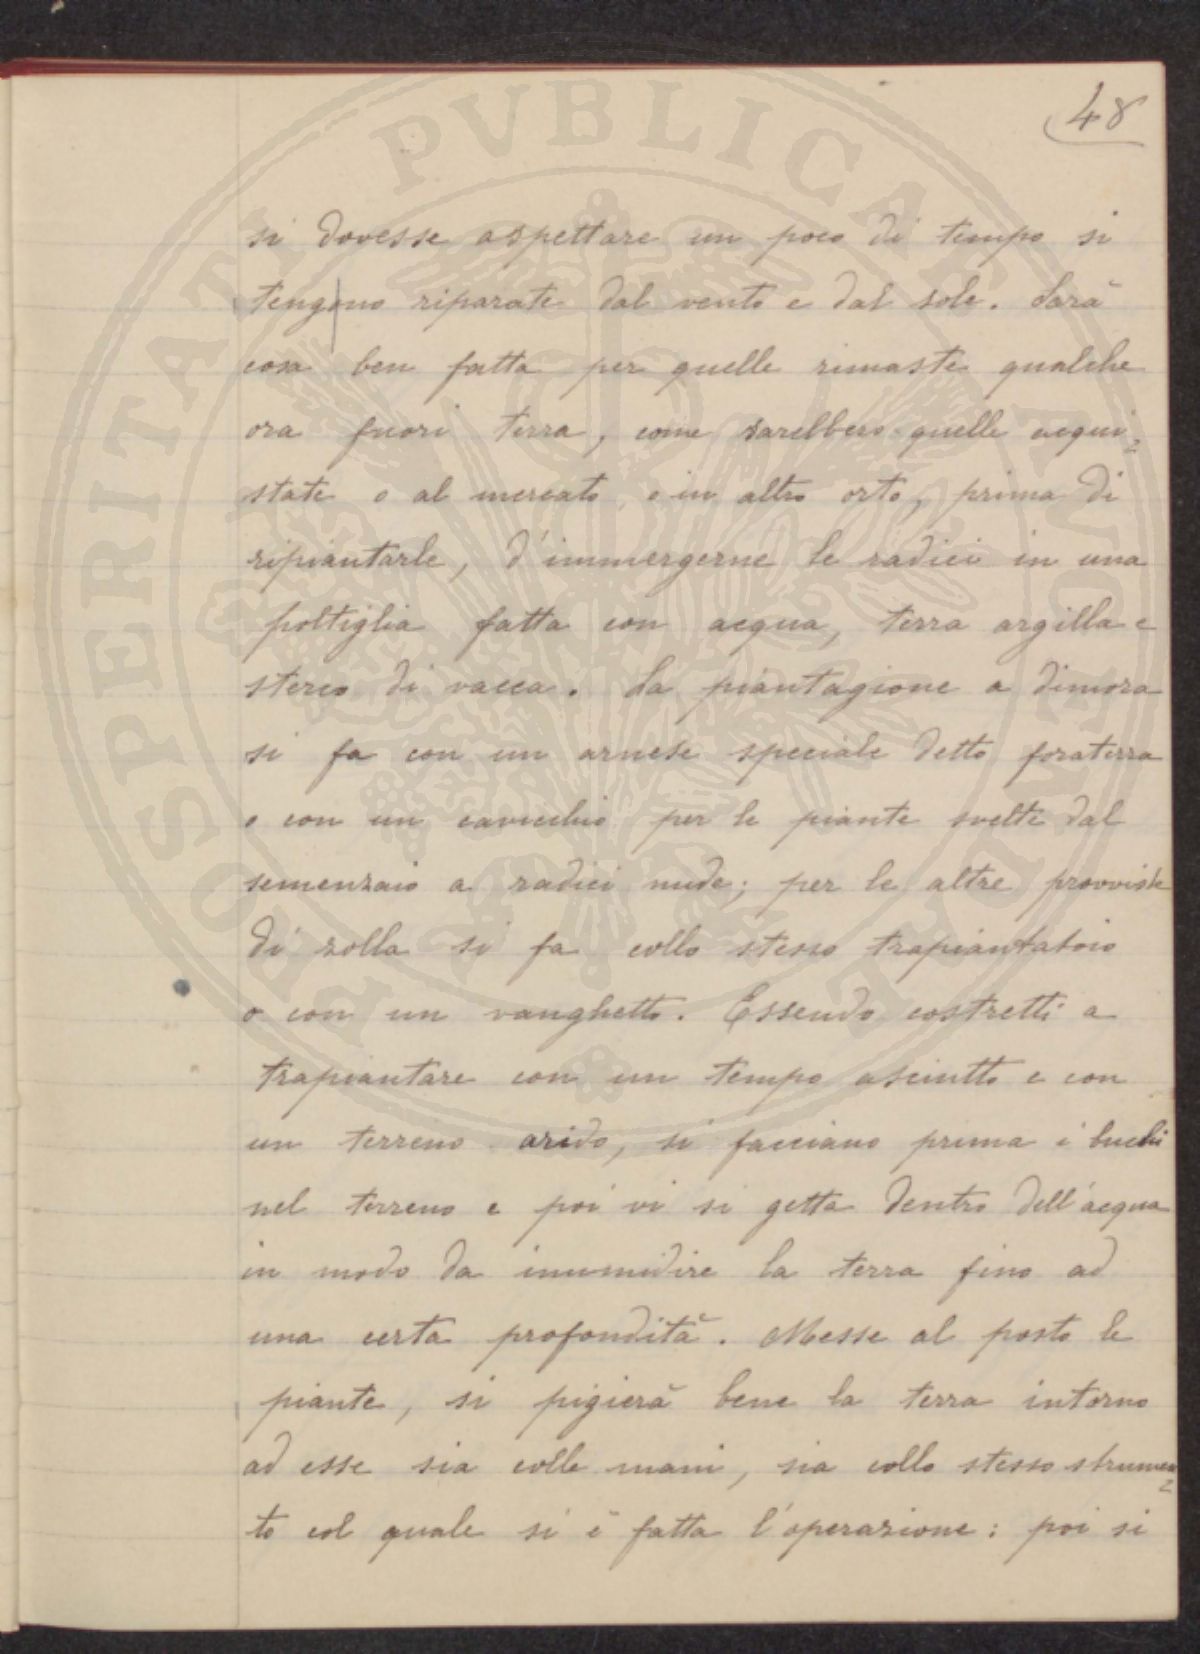 48
si dovesse aspettare un poco di tempo si
tengono riparate dal vento e dal sole. Sarà
cosa ben fatta per quelle rimaste qualche
ora fuori terra, come sarebbero quelle acqui=
state o al mercato o in altro orto, prima di
ripiantarle, d'immergerne le radici in una
poltiglia fatta con acqua, terra argilla e
sterco di vacca. La piantagione a dimora
si fa con un arnese speciale detto foraterra
o con un cavicchio per le piante svelte dal
semenzaio a radici nude; per le altre provviste
di zolla si fa collo stesso trapiantatoio
o con un vanghetto. Essendo costretti a
trapiantare con un tempo asciutto e con
un terreno arido, si facciano prima i buchi
nel terreno e poi vi si getta dentro dell'acqua
in modo da inumidire la terra fino ad
una certa profondità. Messe al posto le
piante, si pigierà bene la terra intorno
ad esse sia colle mani, sia collo stesso strumen=
to col quale si è fatta l'operazione: poi si
PROSPERITATI PVBLICAE